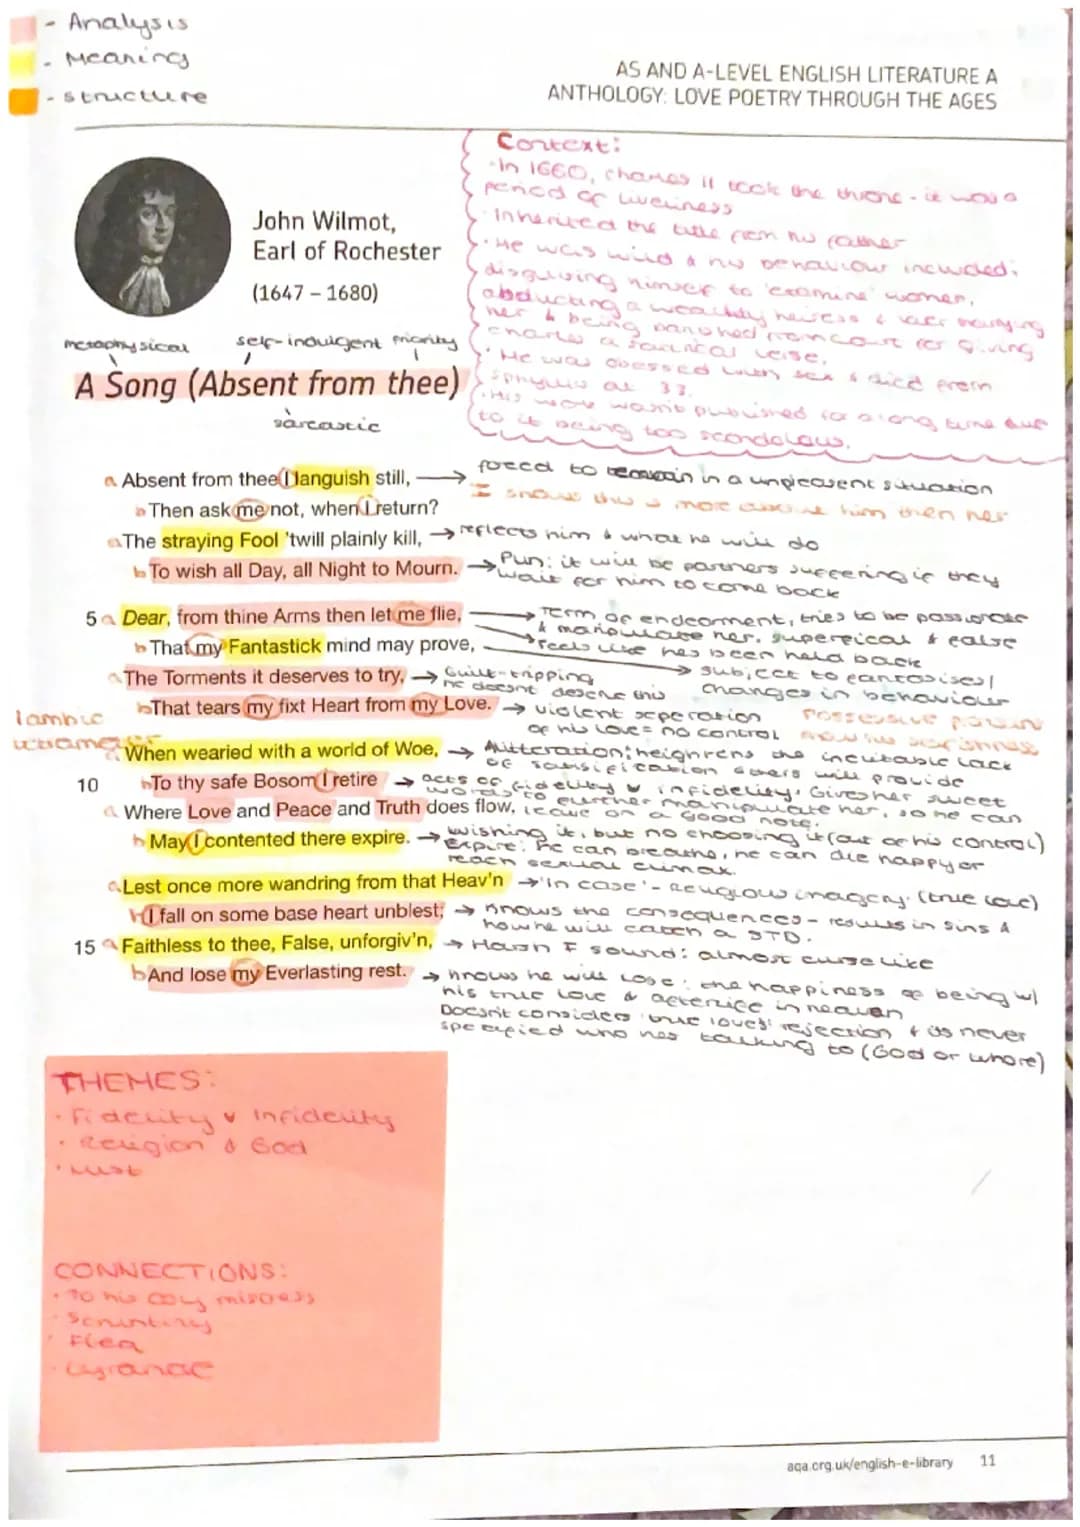 - Analysis
- Meaning
- structure
AS AND A-LEVEL ENGLISH LITERATURE A
ANTHOLOGY: LOVE POETRY THROUGH THE AGES
Context:
• In 1660, Charles II took the throne - it was a
period of liveliness
• Inherited the title from his father
• He was wild & his behaviour included:
disguising himself to 'examine' women,
abducting a wealthy heiress & later marrying
her & being banished from court for giving
Charles a satirical verse.
• He was obessed with sex & died from
sphyllis at 33.
• His work wasnt published for a long time due
to it being too scandolous.
John Wilmot,
Earl of Rochester
(1647 – 1680)
metaphysical
self-indulgent priority
A Song (Absent from thee)
sarcastic
a Absent from thee I languish still, → forced to remain in a unpleasent situation
I shows this is more about him then her
b Then ask me not, when I return?
a The straying Fool 'twill plainly kill, → reflects him & what he will do
b To wish all Day, all Night to Mourn. → Pun: it will be partners suffering if they
wait for him to come back
5 a Dear, from thine Arms then let me flie, → Term of endearment, tries to be passionate
& manipulate her. superficial & false
b That my Fantastick mind may prove, → feels like he's been held back
→ subject to fantasises/
changes in behaviour
a The Torments it deserves to try, → Guilt-tripping
he doesnt deserve this
b That tears my fixt Heart from my Love. → violent seperation
of his love = no control
Possessive pronoun
shows selfishness
Iambic
tetrameter
a When wearied with a world of Woe, → Alitteration: heighrens the inevitable lack
of satisification others will provide
10 b To thy safe Bosom I retire → acts of fidelity v infidelity. Gives her sweet
words to further manipulate her, so he can
leave on a good note.
a Where Love and Peace and Truth does flow,
b May I contented there expire. → wishing it, but no choosing it (out of his control)
Expire: he can breathe, he can die happy or
reach sexual climax.
a Lest once more wandring from that Heav'n → 'In case' - Religious imagery. (true love)
b I fall on some base heart unblest; → knows the consequences - results in sins &
how he will catch a STD.
15 a Faithless to thee, False, unforgiv'n, → Harsh F sound: almost curse like
b And lose my Everlasting rest. → knows he will lose: the happiness of being w/
his true love & afterlife in heaven
Doesnt consider 'true loves' rejection & its never
specified who hes talking to (God or whore)
THEMES:
• Fidelity v Infidelity
• Religion & God
• Lust
CONNECTIONS:
• To his coy misress
• Scrutiny
• Flea
• Cynarae
aqa.org.uk/english-e-library 11